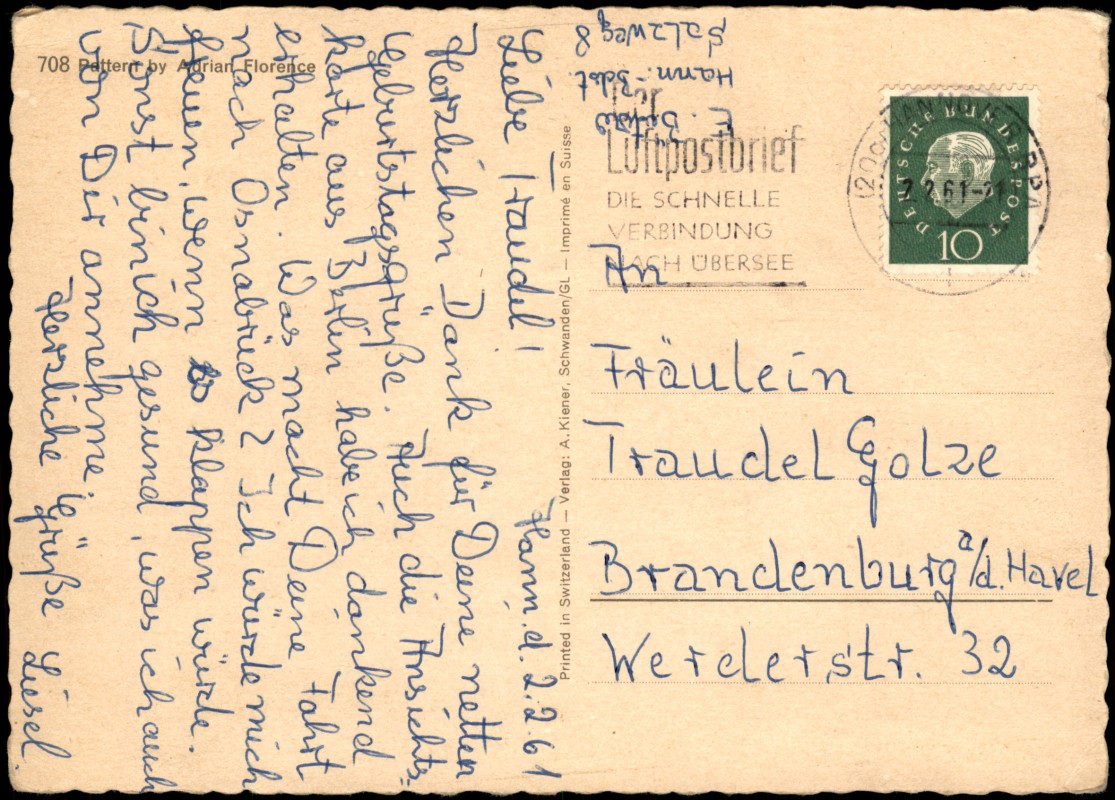 708 Pattern by Adrian Florence
Hann. d. 2.2.61
Liebe Traudel!
Herzlichen Dank für Deine netten
Geburtstagsgrüße. Auch die Ansichts-
karte aus Berlin habe ich dankend
erhalten. Was macht Deine Fahrt
nach Osnabrück? Ich würde mich
freuen, wenn es klappen würde.
Sonst bin ich gesund, was ich auch
von Dir annehme.
Herzliche Grüße Liesel.
Printed in Switzerland — Verlag: A. Kiener, Schwanden/GL — Imprimé en Suisse
Hann.-Bdst.
Salzweg 8
Der
Luftpostbrief
DIE SCHNELLE
VERBINDUNG
NACH ÜBERSEE
HANNOVER
2.2.61-21
DEUTSCHE BUNDESPOST
10
An
Fräulein
Traudel Golze
Brandenburg a/d. Havel
Werderstr. 32